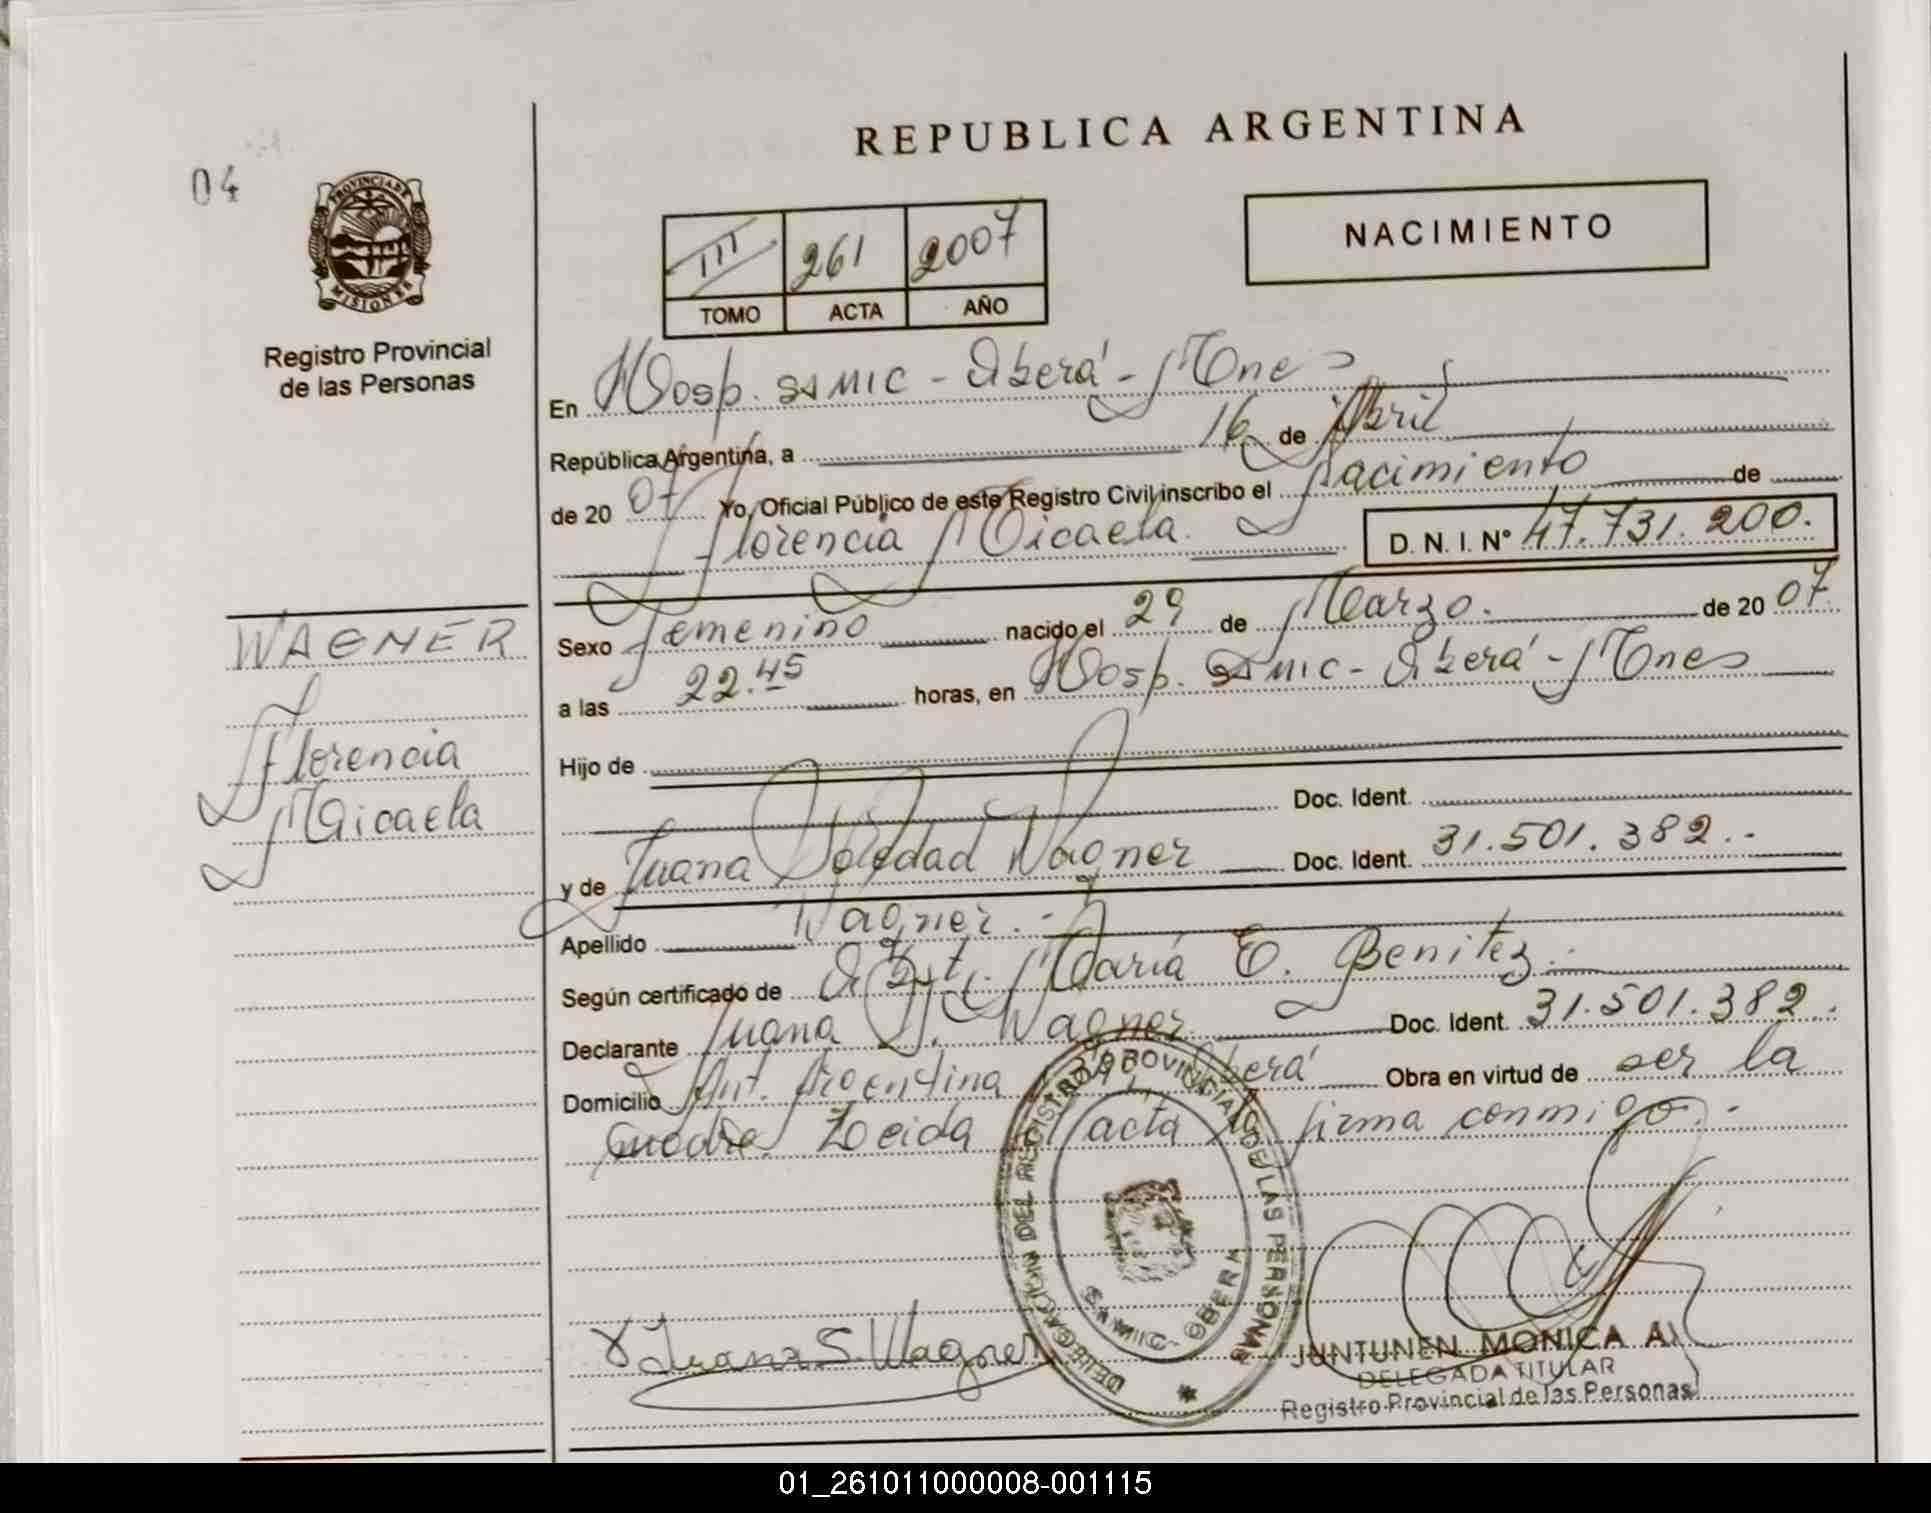 REPUBLICA ARGENTINA
04
PROVINCIA DE
MISIONES
Registro Provincial
de las Personas
III 261 2007
TOMO ACTA AÑO
NACIMIENTO
En Hosp. SAMIC - Oberá - Mnes
República Argentina, a 16 de Abril
de 20 07 Yo, Oficial Público de este Registro Civil inscribo el Nacimiento de
Florencia Micaela. D. N. I. N° 47.731.200.
WAGNER
Florencia
Micaela
Sexo Femenino nacido el 29 de Marzo. de 20 07
a las 22.45 horas, en Hosp. SAMIC - Oberá - Mnes
Hijo de
Doc. Ident.
y de Juana Soledad Wagner Doc. Ident. 31.501.382.-
Apellido Wagner.-
Según certificado de Obst. María E. Benitez.-
Declarante Juana S. Wagner Doc. Ident. 31.501.382.
Domicilio Ant. Argentina Oberá Obra en virtud de ser la
madre. Leida acta la firma conmigo.-
DELEGACION DEL REGISTRO PROVINCIAL DE LAS PERSONAS
SAMIC OBERA
Juana S. Wagner
JUNTUNEN MONICA A.
DELEGADA TITULAR
Registro Provincial de las Personas
01_261011000008-001115